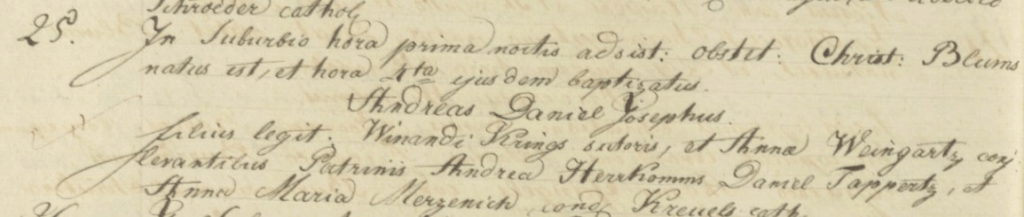 Schroeder cathol
25. In Suburbio hora prima noctis adsist: obstet: Christ: Blums
natus est, et hora 4ta ejusdem baptizatus.
Andreas Daniel Josephus.
filius legit: Winandi Krings sutoris, et Annæ Weingartz conj:
levantibus Patrinis Andrea Herrkomms Daniel Tappertz, et
Anna Maria Merzenich, cond Kreuels cath.